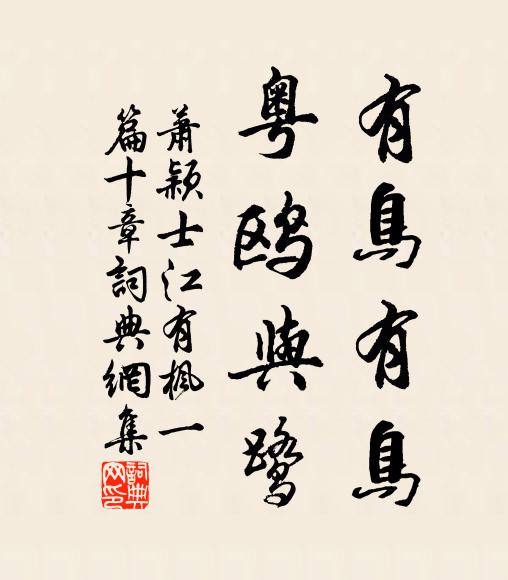 有鳥有鳥
粤鸥與鹭
蕭颖士江有楓一
篇十章詞典網集
詞典网印